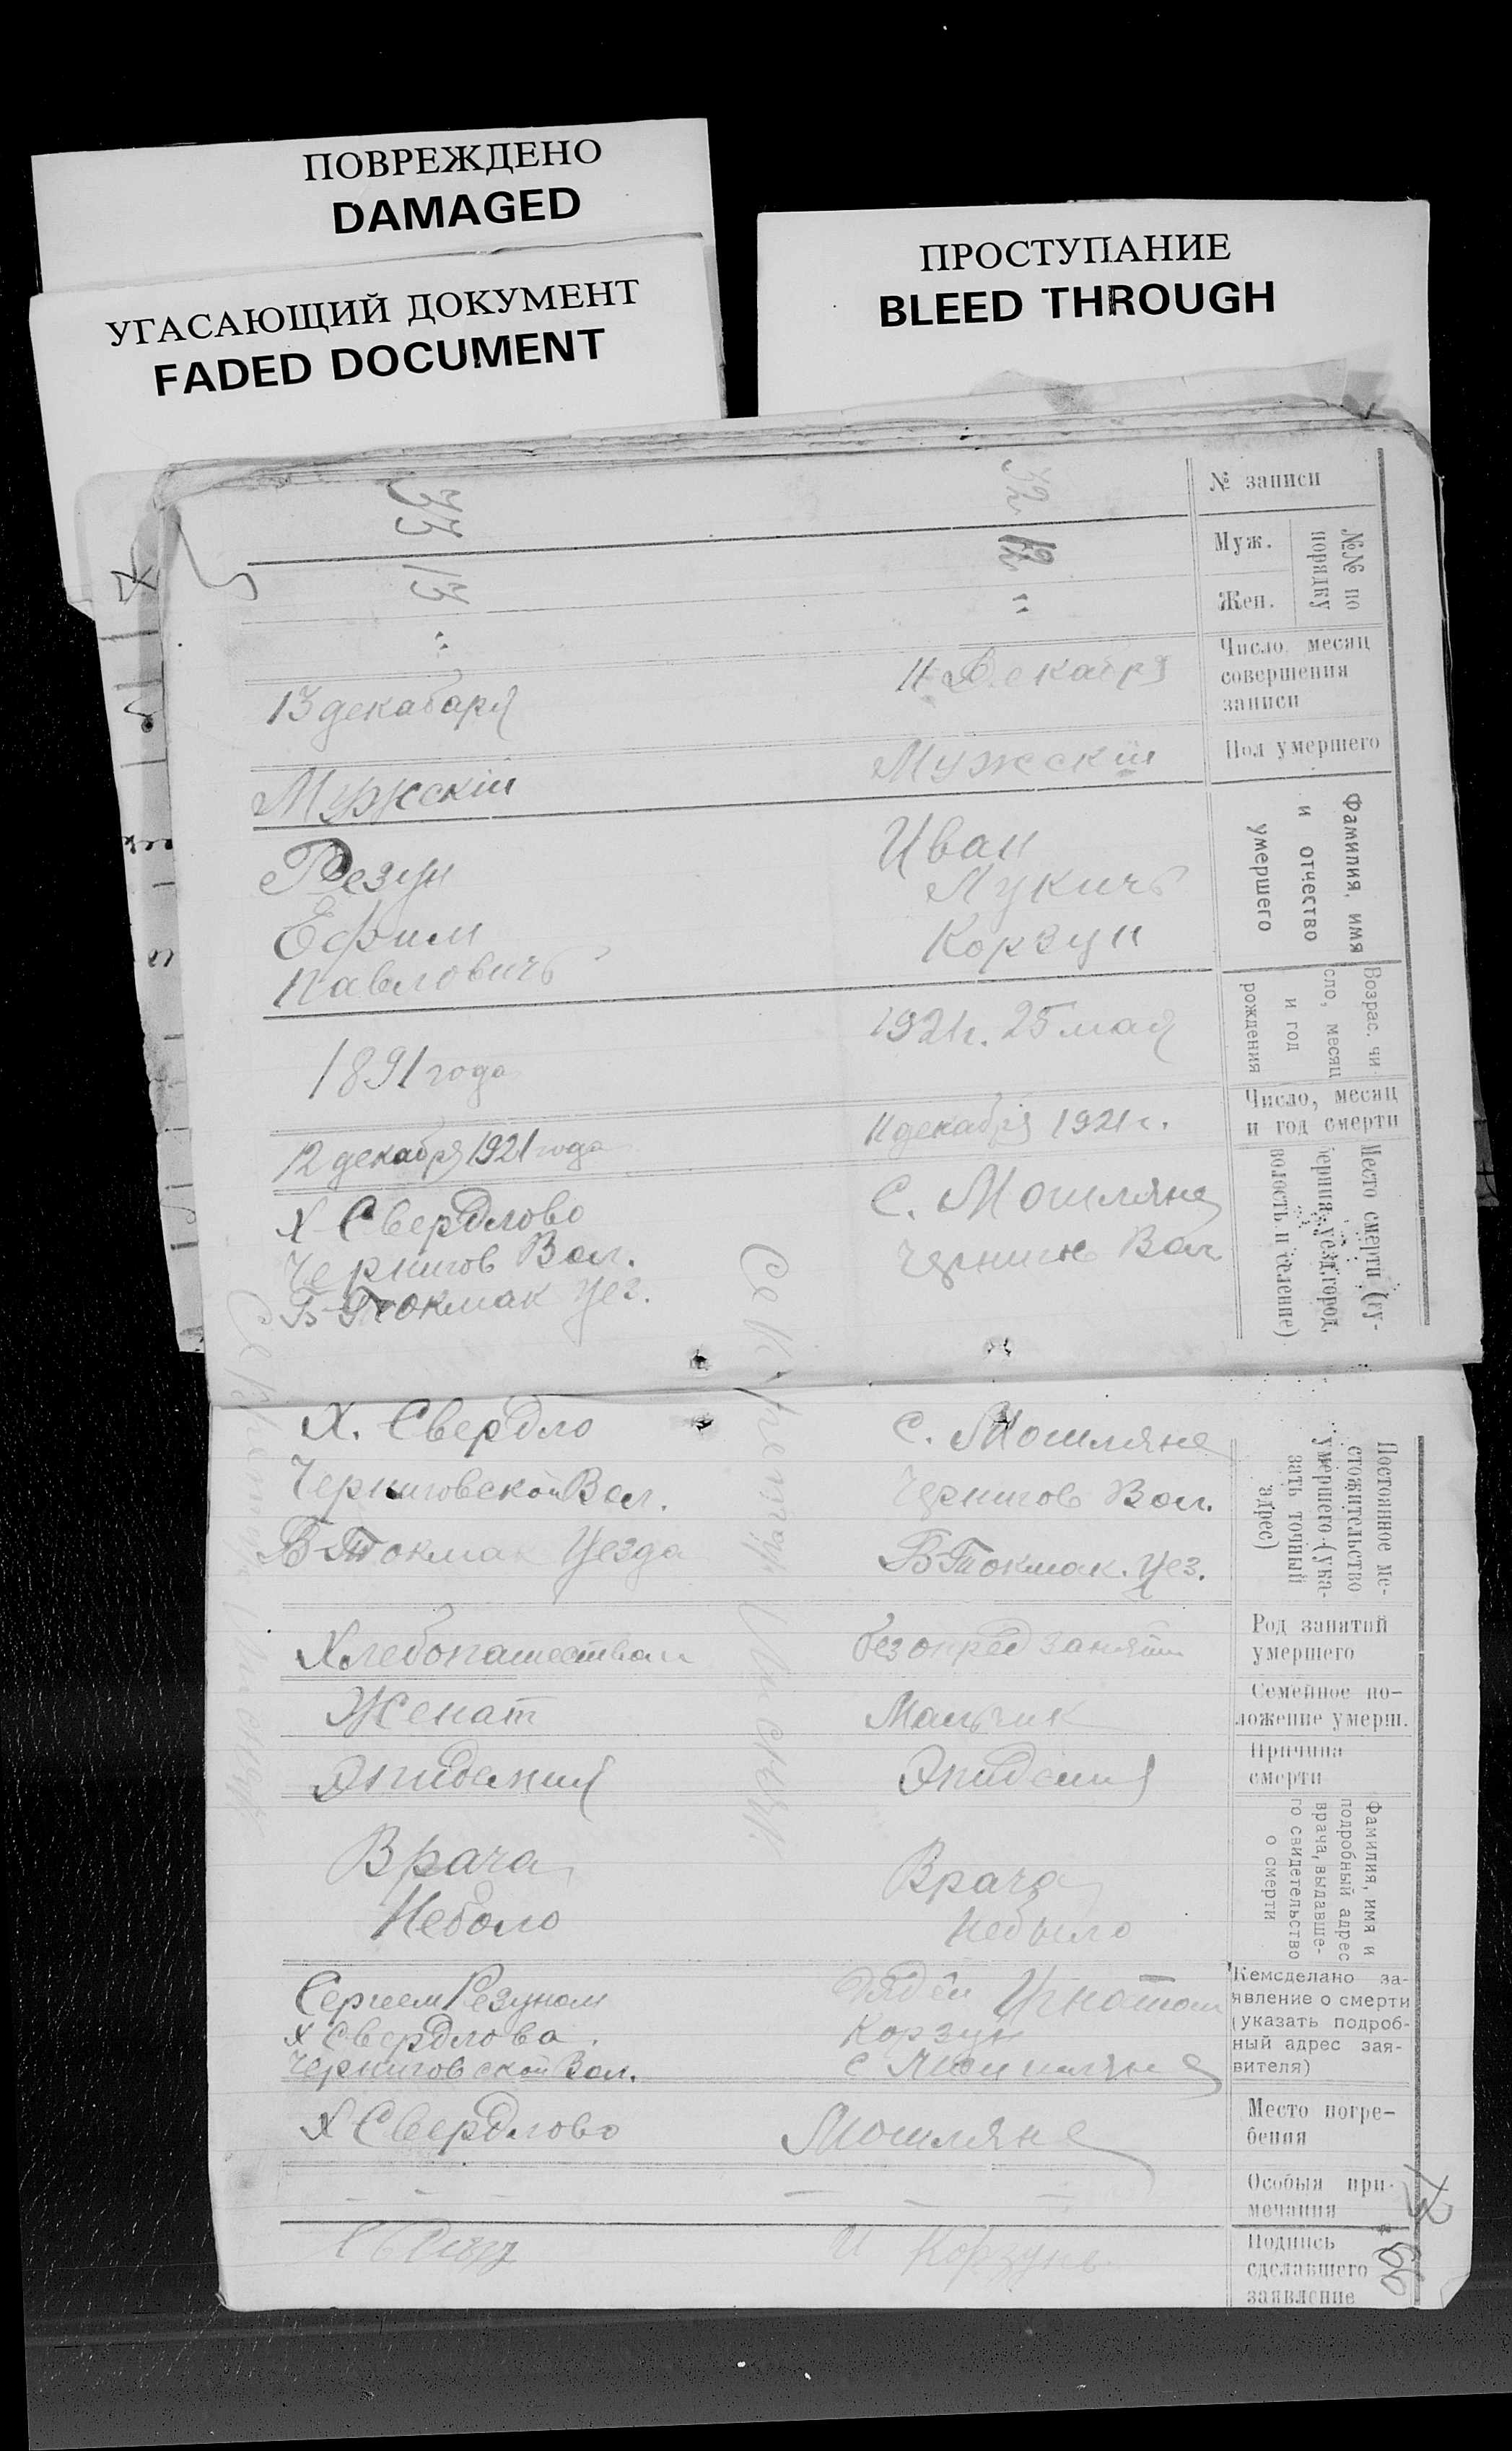 ПОВРЕЖДЕНО
DAMAGED
УГАСАЮЩИЙ ДОКУМЕНТ
FADED DOCUMENT
ПРОСТУПАНИЕ
BLEED THROUGH
№ записи
32
33
№№ по порядку
Муж.
12
13
Жен.
"
"
Число, месяц
совершения
записи
11 Декабря
13 декабаря
Пол умершего
Мужскій
Мужскій
Фамилия, имя
и отчество
умершего
Иван
Лукичъ
Корзун
Резун
Ефим
Павловичъ
Возрас. чи-
сло, месяц
и год
рождения
1921 г. 25 мая
1891 года
Число, месяц
и год смерти
11 декабря 1921 г.
12 декабря 1921 года
Место смерти (гу-
берния, уезд, город,
волость и селение)
С. Мошляне
Вол
Х Свердлово
Чернигов Вол.
Б-Токмак Уез.
Постоянное ме-
стожительство
умершего (ука-
зать точный
адрес)
С. Мошляне
Чернигов Вол.
Б Токмак. Уез.
Х. Свердло
Черниговской Вол.
Б-Токмак Уезда
Род занятий
умершего
без опред занятий
Хлебопашеством
Семейное по-
ложение умерш.
Мальчик
Женат
Причина
смерти
Эпидемия
Эпидемия
Фамилия, имя и
подробный адрес
врача, выдавше-
го свидетельство
о смерти
Врача
Небыло
Врача
Неболо
Кем сделано за-
явление о смерти
(указать подроб-
ный адрес зая-
вителя)
Дядей Игнатом
Корзун
С Мошляне
Сергеем Резуном
х Свердлова
Черниговской Вол.
Место погре-
бения
Мошляне
Х Свердлово
Особыя при-
мечания
— — —
— — —
Подпись
сделавшего
заявление
И Корзунъ
73
66
Секретарь
Секретарь